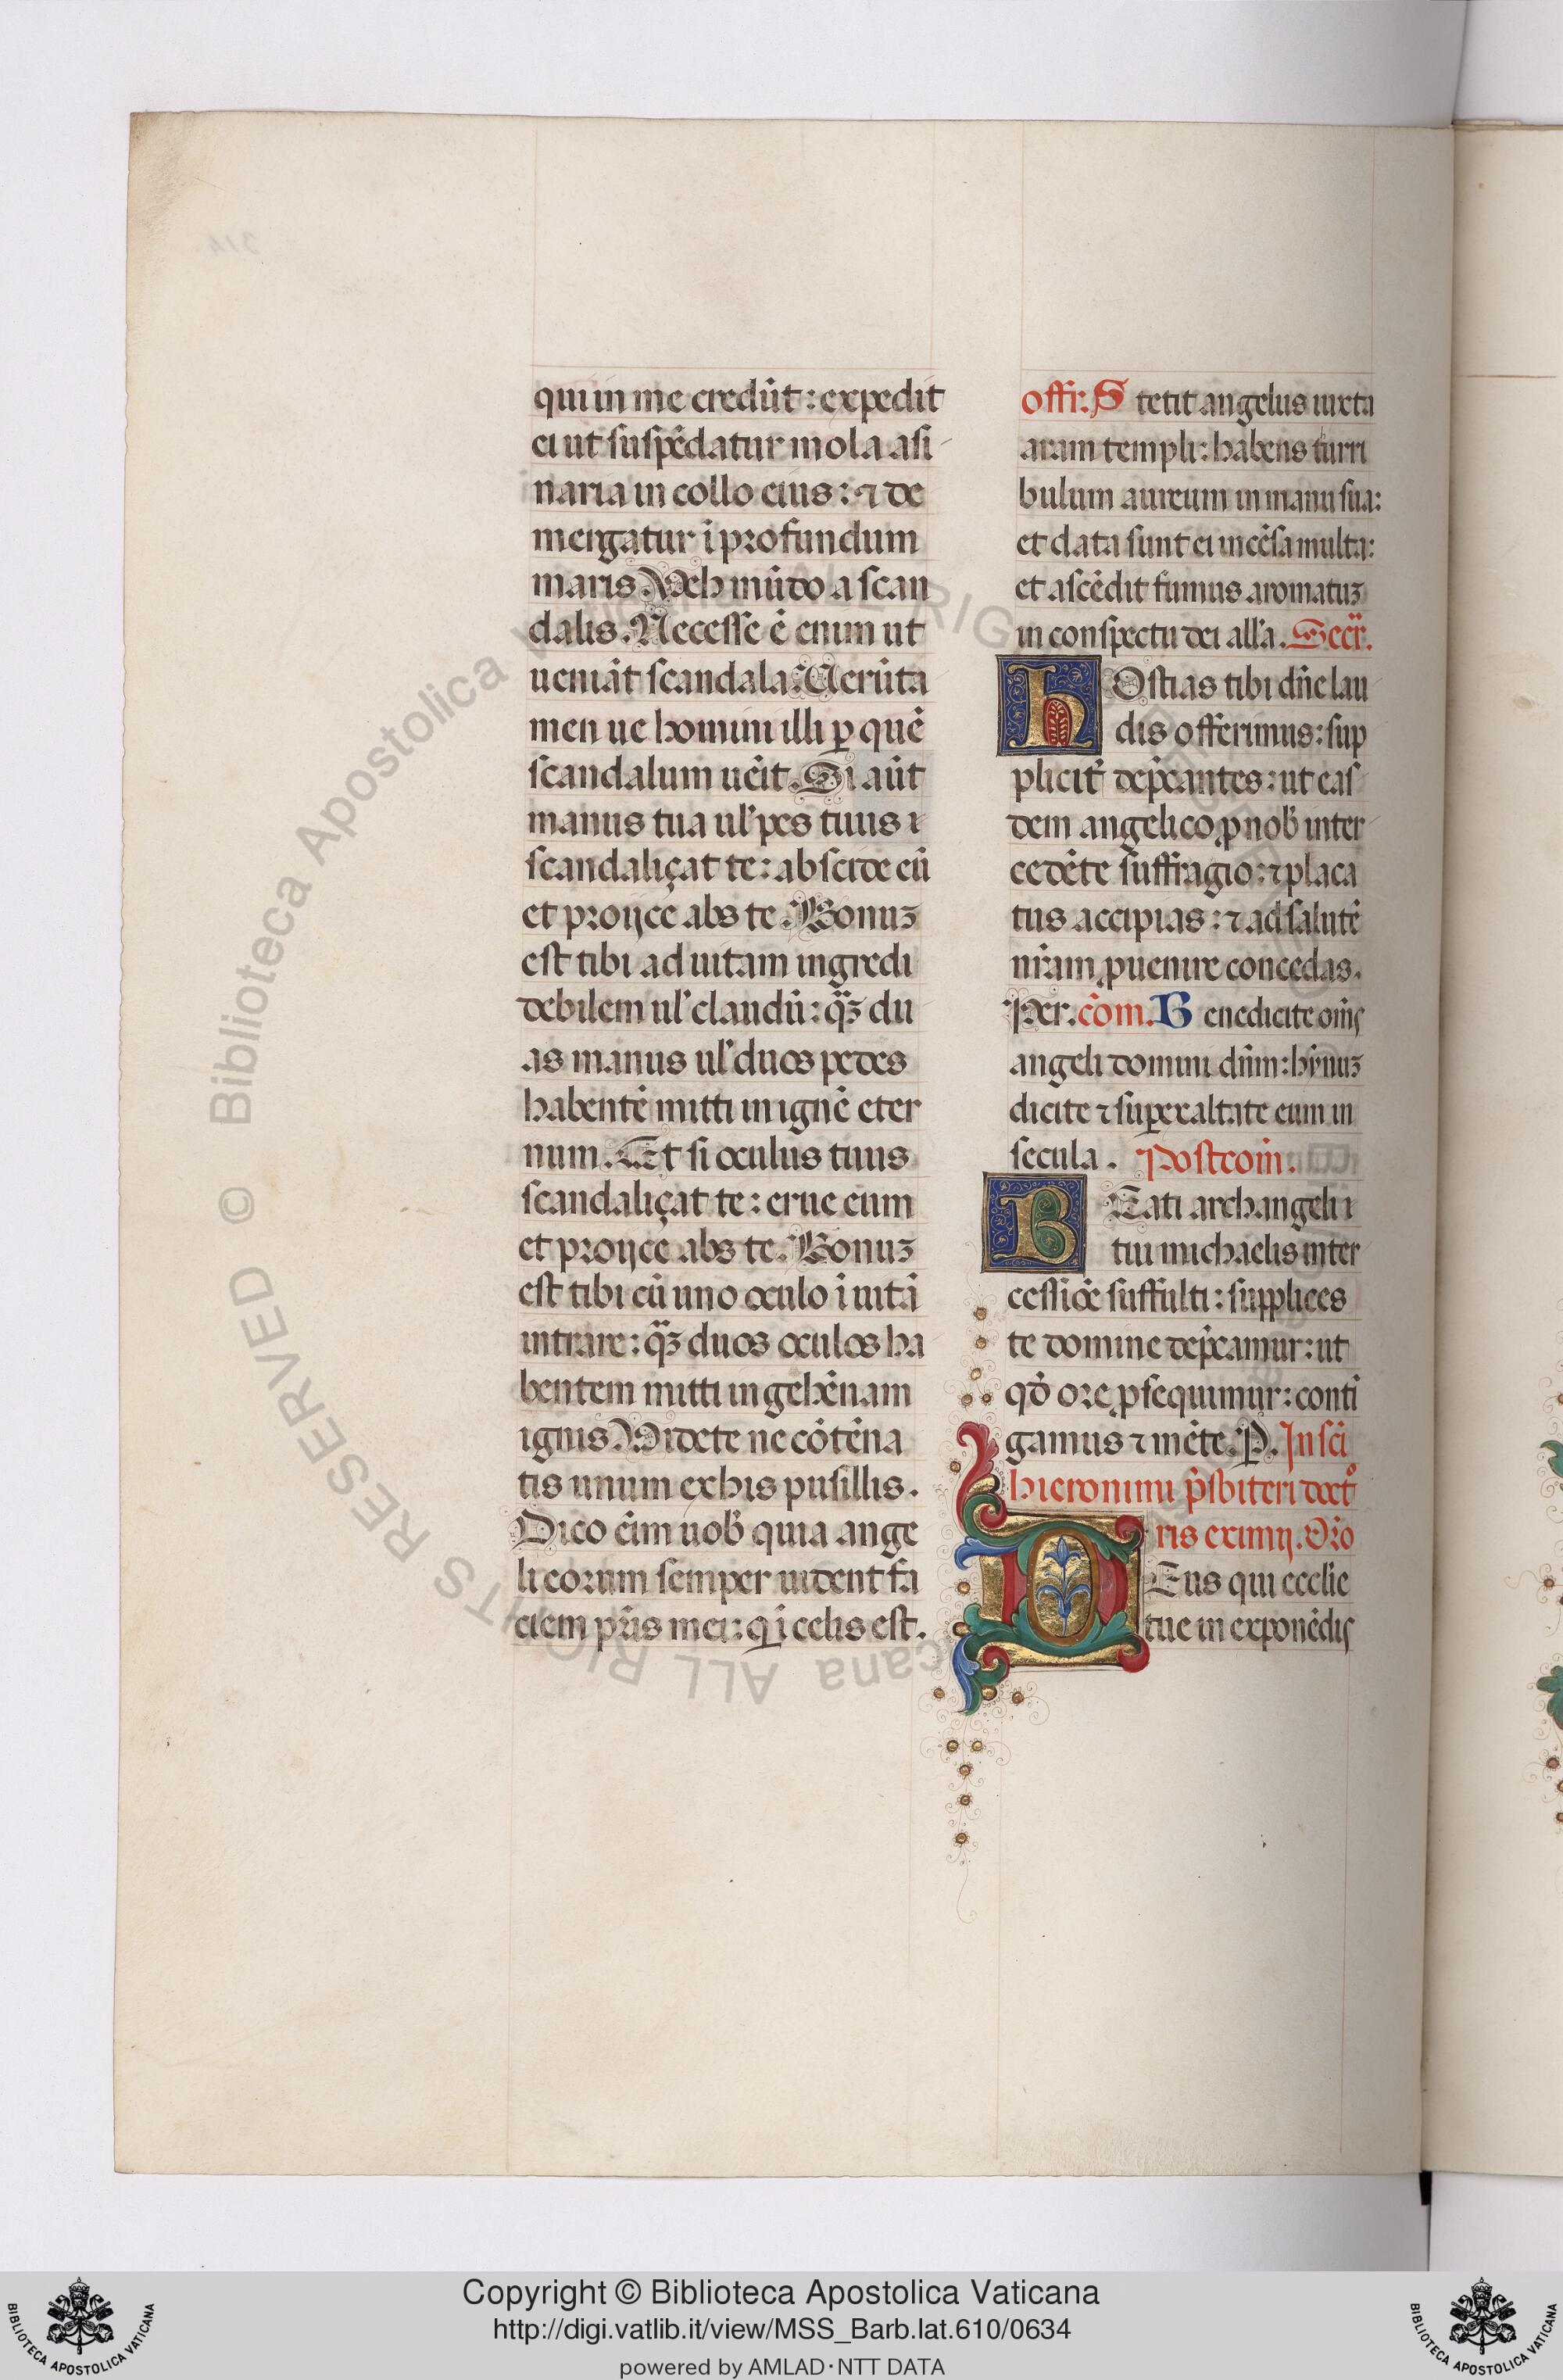 qui in me credūt : expedit
ei ut suspēdatur mola asi
naria in collo eius : ⁊ de
mergatur ī profundum
maris. Veh mūdo a scan
dalis. Necesse ē enim ut
ueniāt scandala. Uerūta
men ue homini illi ꝑ quē
scandalum ueīt. Si aūt
manus tua ul' pes tuus ı
scandaliçat te : abscide eū
et proijce abs te. Bonuꝫ
est tibi ad uitam ingredi
debilem ul' claudū : qꝫ du
as manus ul' duos pedes
habentē mitti in ignē eter
num. Et si oculus tuus
scandaliçat te : erue eum
et proijce abs te. Bonuꝫ
est tibi cū uno oculo ī uitā
intrare : qꝫ duos oculos ha
bentem mitti in gehēnam
ignis. Videte ne cōtēna
tis unum ex his pusillis.
Dico eīm uob' quia ange
li eorum semper uident fa
ciem pr̄is mei : q ī celis est.
offr. Stetit angelus iuxta
aram templi : habens turri
bulum aureum in manu sua :
et data sunt ei incēsa multa :
et ascēdit fumus aromatuꝫ
in conspectu dei all'a. Secr̄.
hOstias tibi dn̄e lau
dis offerimus : sup
plicit' dep̄cantes : ut eas
dem angelico ꝓ nob' inter
cedēte suffragio : ⁊ placa
tus accipias : ⁊ ad salutē
nr̄am ꝓuenire concedas.
Per. cōm. Benedicite om̄s
angeli domini dn̄m : hȳnuꝫ
dicite ⁊ suꝑexaltate eum in
secula. Postcom̄.
BEati archangeli ı
tui michaelis inter
cessiōe suffulti : supplices
te domine dep̄camur : ut
qđ ore ꝓsequimur : contī
gamus ⁊ mēte. P. In sc̄i
hieronimi p̄sbiteri doct°
ris eximij. Or̄o
DEus qui eccl'ie
tue in exponēdis
Copyright © Biblioteca Apostolica Vaticana
http://digi.vatlib.it/view/MSS_Barb.lat.610/0634
powered by AMLAD·NTT DATA
BIBLIOTECA APOSTOLICA VATICANA
BIBLIOTECA APOSTOLICA VATICANA
© Biblioteca Apostolica Vaticana ALL RIGHTS RESERVED